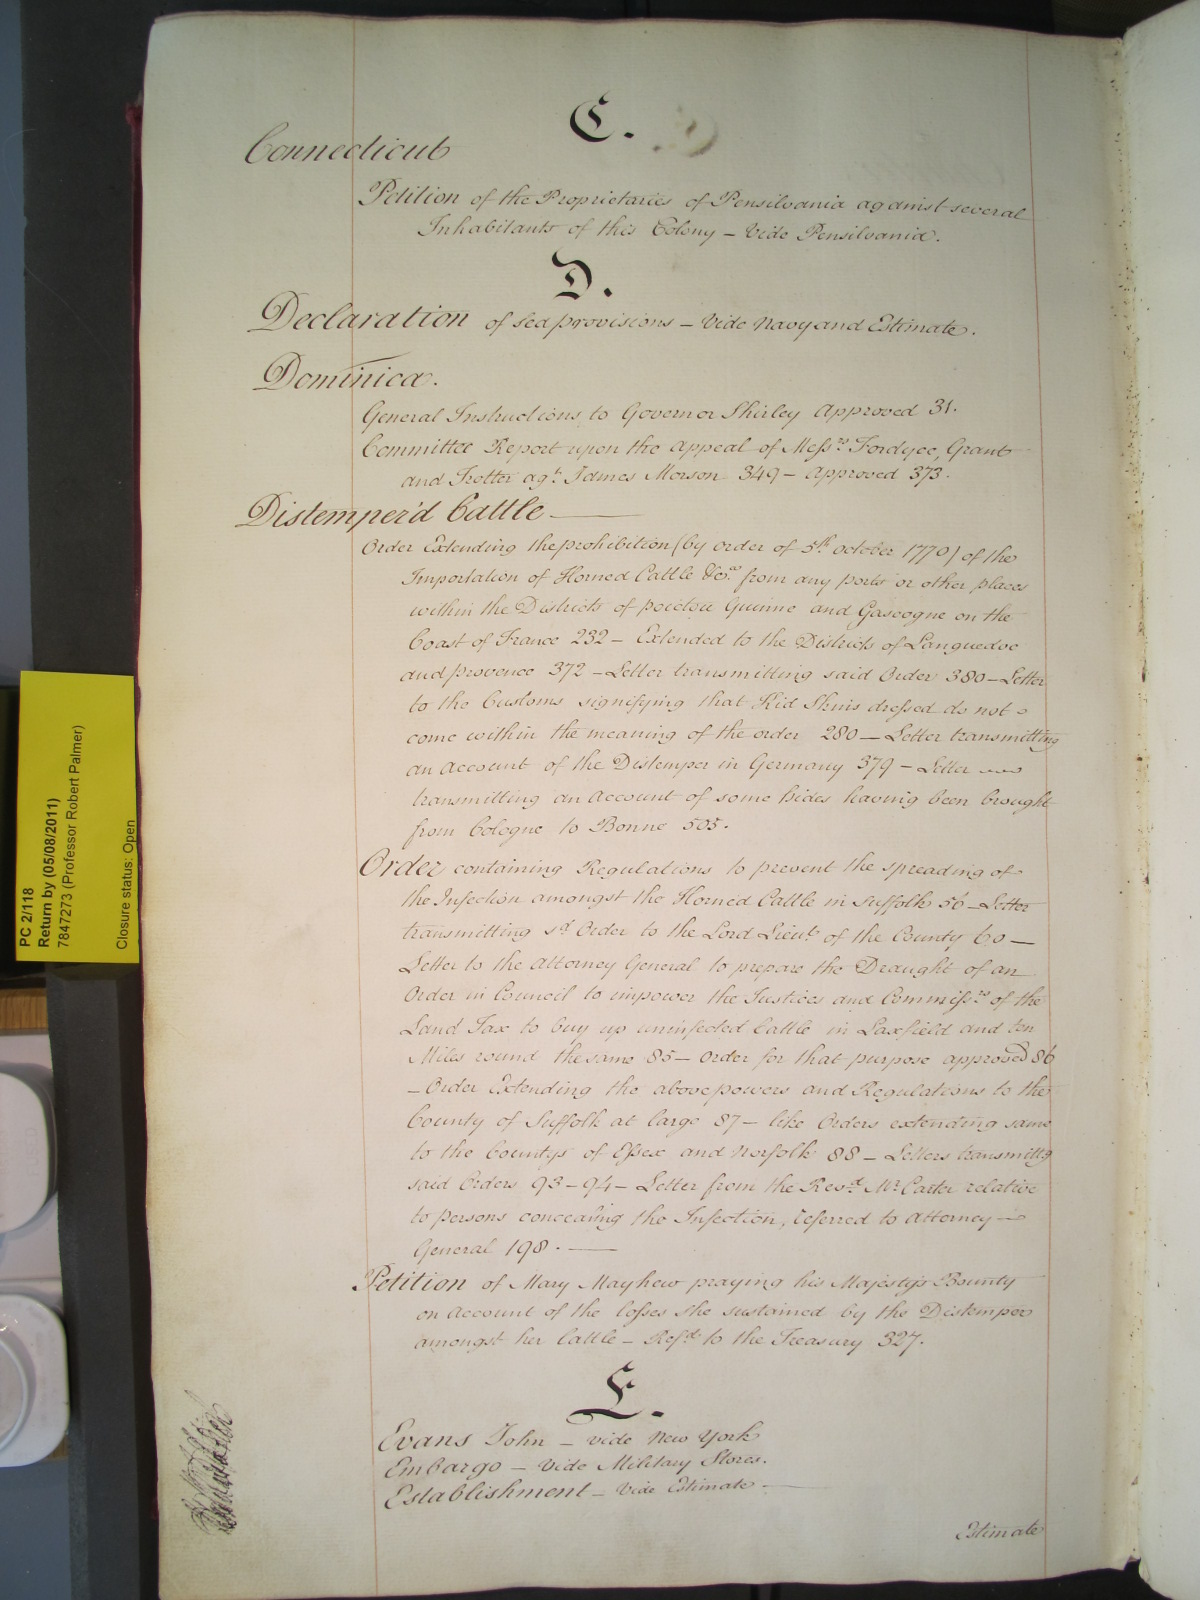 C.
Connecticut
Petition of the Proprietaries of Pensilvania against several
Inhabitants of this Colony – Vide Pensilvania.
D.
Declaration of Sea provisions – Vide Navy and Estimate.
Dominica.
General Instructions to Governor Shirley Approved 31.
Committee Report upon the Appeal of Messrs. Fordyce, Grant
and Trotter agt. James Morson 349 – Approved 373.
Distemper'd Cattle
Order Extending the prohibition (by order of 5th October 1770) of the
Importation of Horned Cattle &ca. from any ports or other places
within the Districts of poictou Guinne and Gascogne on the
Coast of France 232 – Extended to the Districts of Languedoc
and provence 372 – Letter transmitting said Order 380 – Letter
to the Customs signifying that Kid Skins dressed do not
come within the meaning of the order 280 – Letter transmitting
an Account of the Distemper in Germany 379 – Letter
transmitting an Account of some hides having been brought
from Cologne to Bonne 505.
Order containing Regulations to prevent the spreading of
the Infection amongst the Horned Cattle in Suffolk 56 – Letter
transmitting sd. Order to the Lord Lieut. of the County 60 –
Letter to the Attorney General to prepare the Draught of an
Order in Council to impower the Justices and Commissrs. of the
Land Tax to buy up uninfected Cattle in Laxfield and ten
Miles round the same 85 – Order for that purpose approved 86
– Order Extending the above powers and Regulations to the
County of Suffolk at large 87 – like Orders extending same
to the Countys of Essex and Norfolk 88 – Letters transmittg
said Orders 93 – 94 – Letter from the Revd. Mr. Carter relative
to persons concealing the Infection, referred to Attorney –
General 198.
Petition of Mary Mayhew praying his Majestys Bounty
on Account of the losses she sustained by the Distemper
amongst her Cattle – Refd. to the Treasury 327.
E.
Evans John – vide New York
Embargo – Vide Military Stores.
Establishment – Vide Estimate
Estimate
PC 2/118
Return by (05/08/2011)
7847273 (Professor Robert Palmer)
Closure status: Open